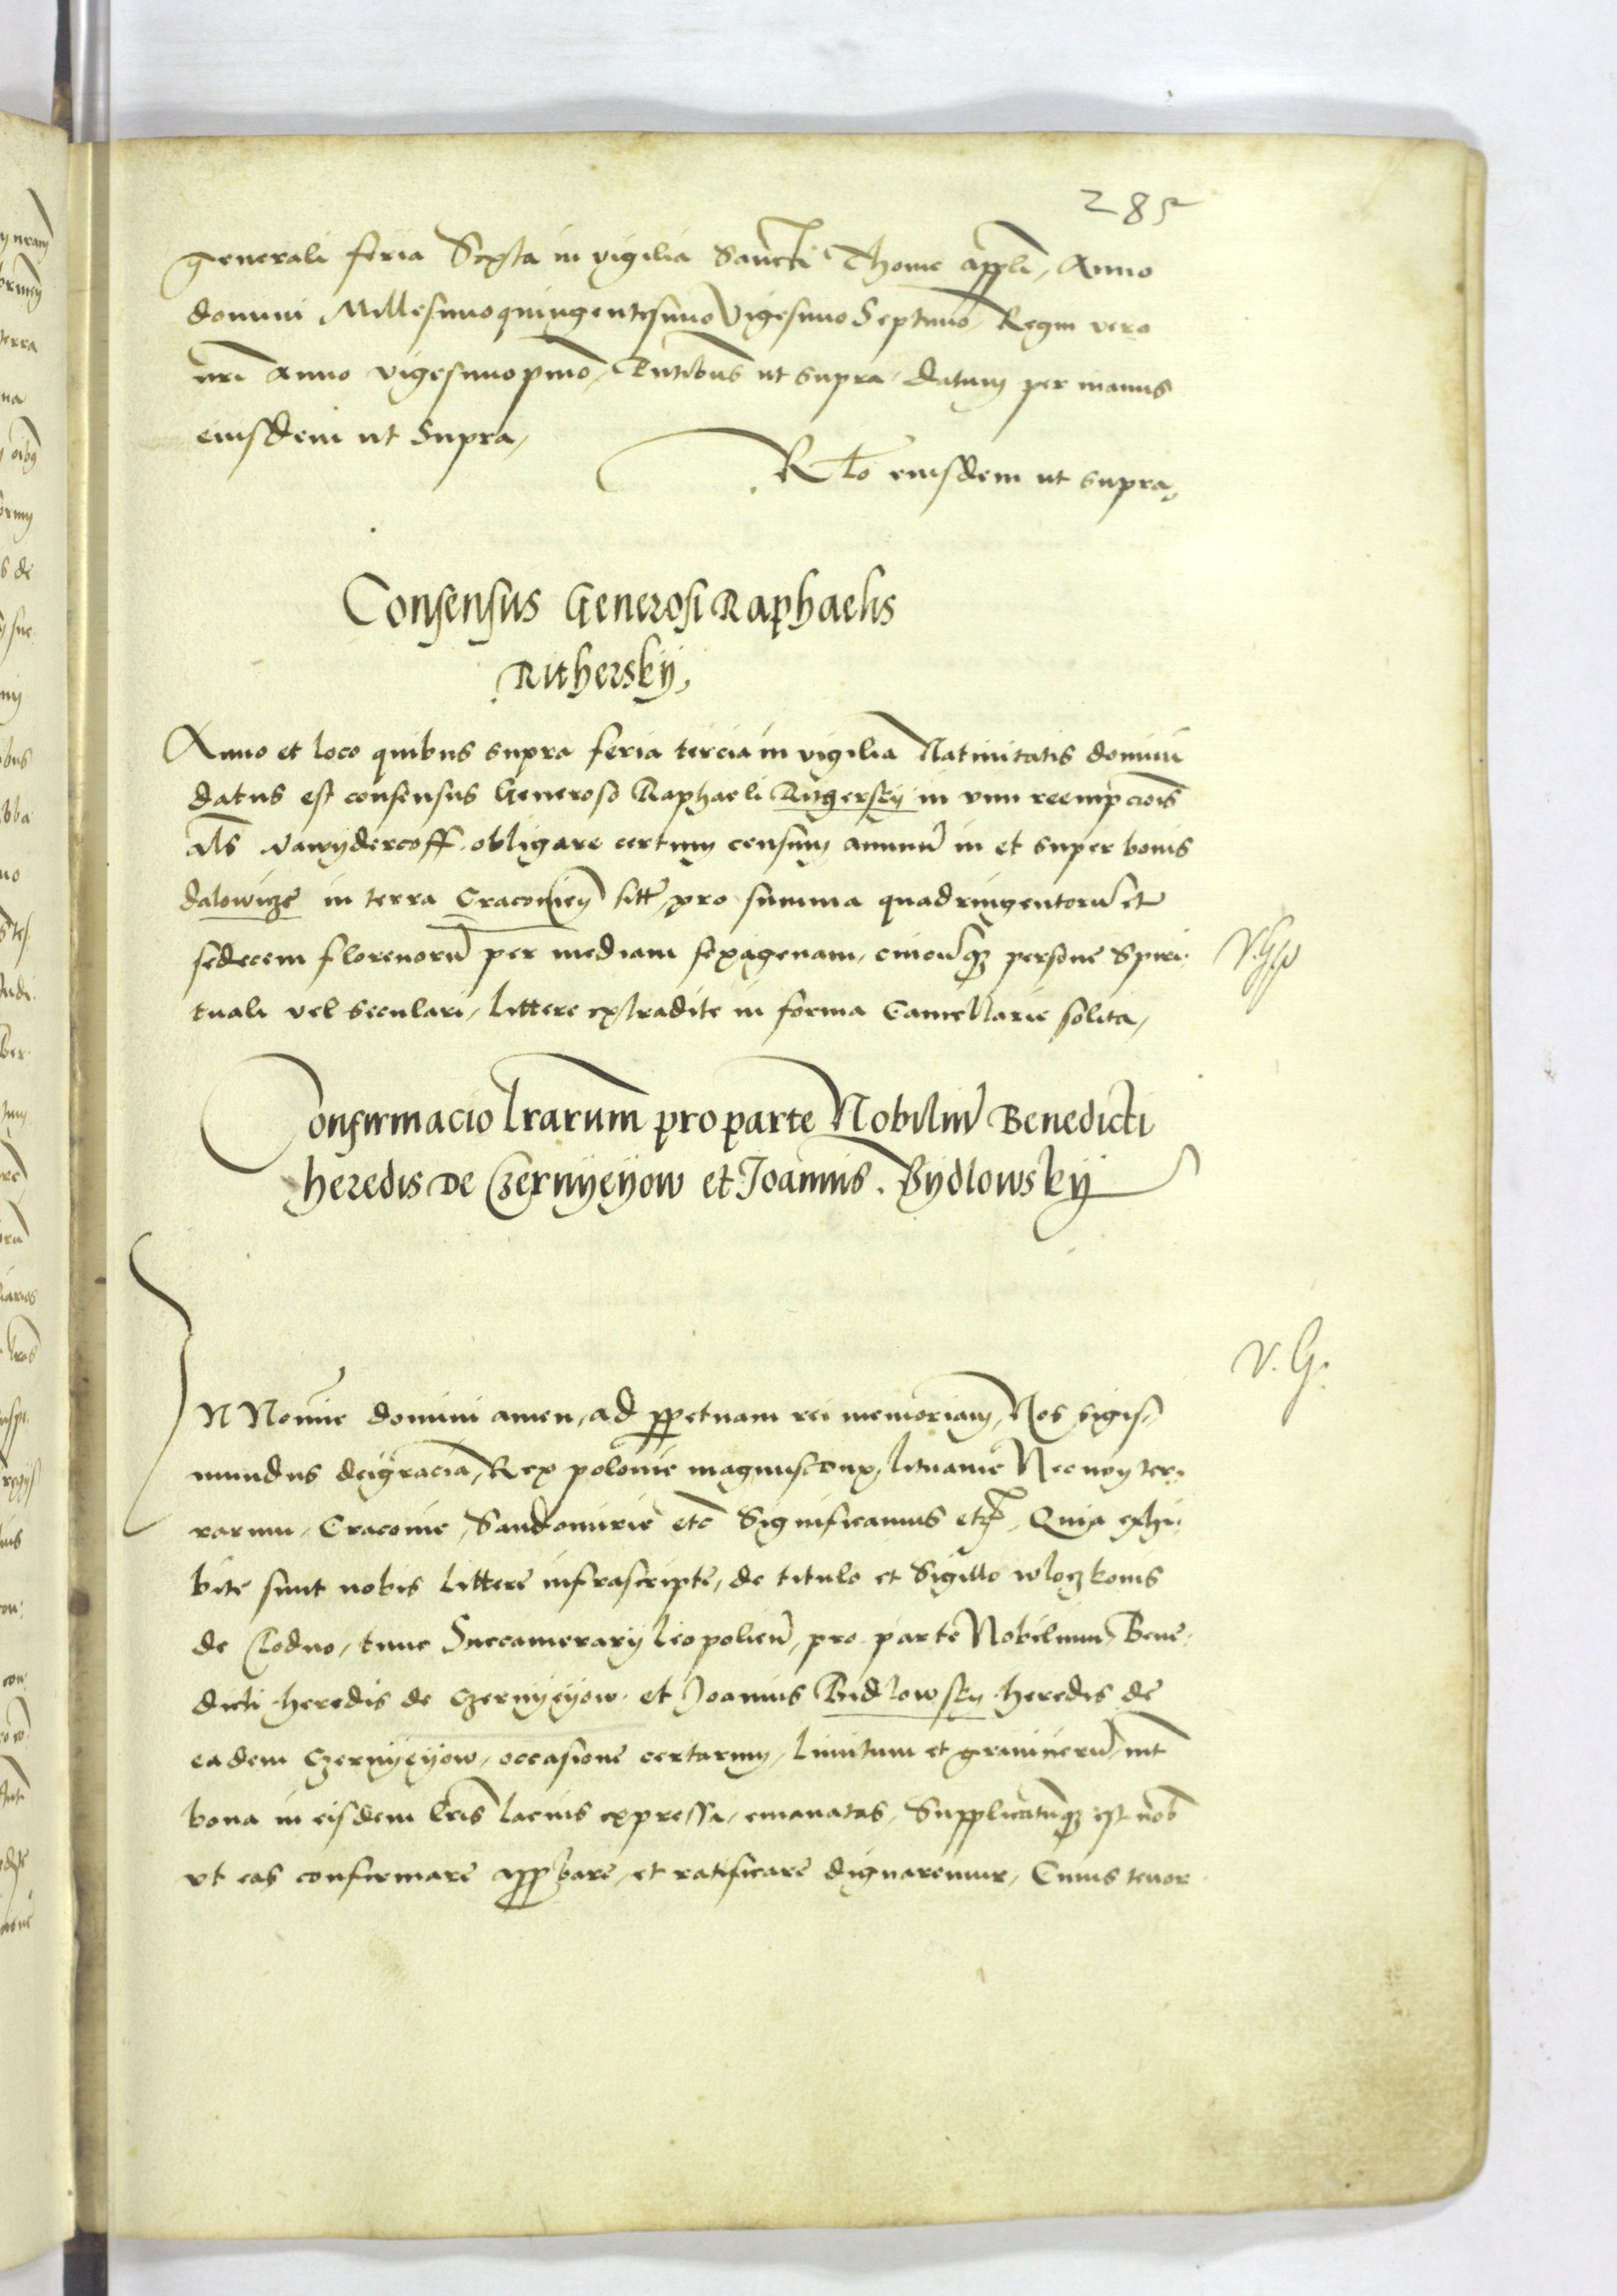 285
generali feria Sexta in vigilia Sancti Thome appli, Anno
domini Millesimoquingentesimo Vigesimo Septimo, Regni vero
nri Anno vigesimoprimo, Pntibus ut supra, datum per manus
eiusdem ut Supra,
Rlo eiusdem ut supra,
Consensus Generosi Raphaelis
Rithersky,
Anno et loco quibus supra feria tercia in vigilia Natiuitatis domini
datus est consensus Generoso Raphaeli Rytgersky in vim reempcionis
als nawydercoff obligare certum censum annuu in et super bonis
dalowicze in terra Cracouien sitt, pro summa quadringentoru et
sedecem florenoru per mediam sexagenam, cuicuqz persone Spiri
tuali vel seculari, littere extradite in forma Cancellarie solita,
Confirmacio lrarum pro parte Nobiliu Benedicti
heredis de Czernyeyow et Joannis Bydlowsky
V. G.
In Nomine domini amen, ad ppetuam rei memoriam, Nos Sigis
mundus dei gracia, Rex polonie magnus dux, lituanie Necnon ter
rarum, Cracouie, Sandomirie etc Significamus etc, Quia exhi
bite sunt nobis littere infrascripte, de titulo et Sigillo wloczkonis
de Clodno, tunc Succamerarij leopolien, pro parte Nobilium, Bene
dicti heredis de Czernyeyow et Joannis Bidlowsky heredis de
eadem Czernyeyow, occasione certarum, limitum et granicieru, int
bona in eisdem lris lacius expressa, emanatas, Supplicatuqz est nob
vt eas confirmare appbare, et ratificare dignaremur, Cuius tenor